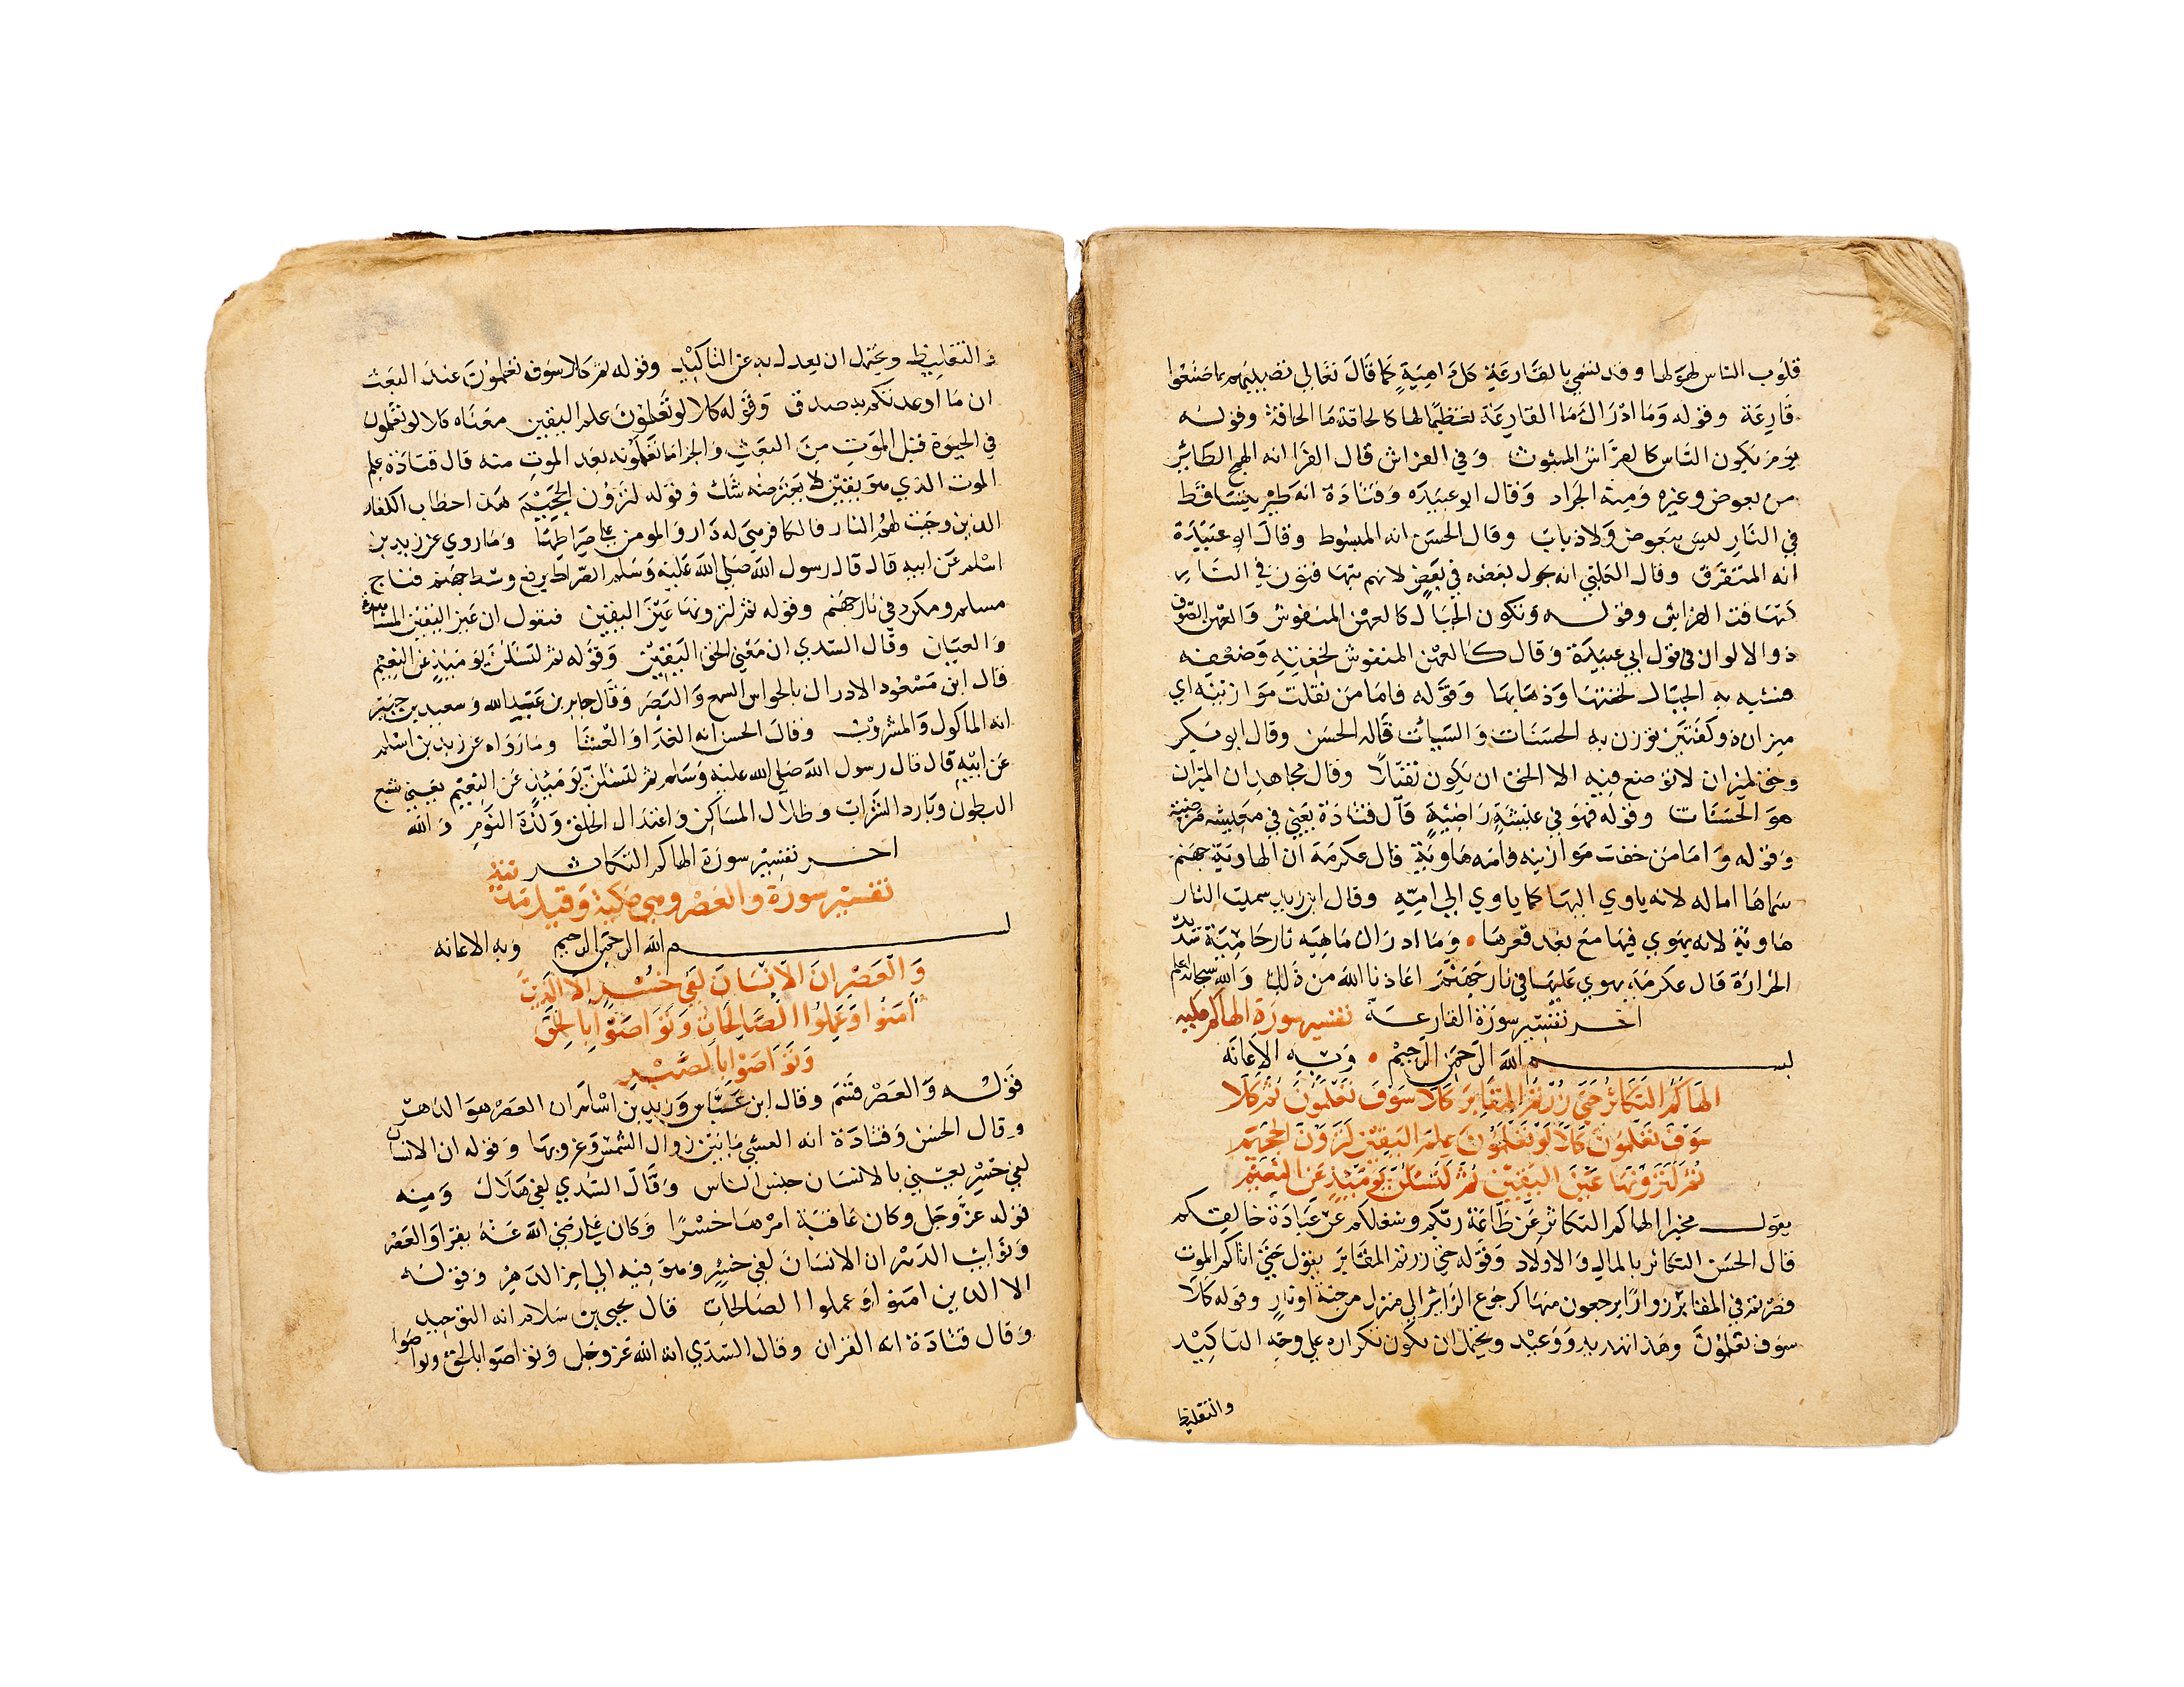 قلوب الناس لهولها وقد تسمي بالقارعة كل داهية كما قال تعالى تصيبهم بما صنعوا
قارعة وقوله وما ادراك ما القارعة تعظيما لها كالحاقة ما الحاقة وقوله
يوم يكون الناس كالفراش المبثوث وفي الفراش قال الفرا انه الهمج الطائر
من بعوض وغيره ومنه الجراد وقال ابو عبيده وقتادة انه طير يتساقط
في النار ليس ببعوض ولا ذباب وقال الحسن انه المبسوط وقال ابو عبيدة
انه المتفرق وقال الكلبي انه يجول بعضه في بعض لانهم يتهافتون في النار
كتهافت الفراش وقوله وتكون الجبال كالعهن المنفوش والعهن الصوف
ذو الالوان في قول ابي عبيدة وقال كالعهن المنفوش لخفته وضعفه
فشبه به الجبال لخفتها وذهابها وقوله فاما من ثقلت موازينه اي
ميزان ذو كفتين توزن به الحسنات والسيات قاله الحسن وقال ابو بكر
وحق لميزان لا توضع فيه الا الحق ان يكون ثقيلا وقال مجاهد ان الميزان
هو الحسنات وقوله فهو في عيشة راضية قال قتادة يعني في معيشه مرضية
وقوله واما من خفت موازينه فامه هاوية قال عكرمة ان الهاوية جهنم
سماها اما له لانه ياوي اليها كما ياوي الى امه وقال ابن زيد سميت النار
هاوية لانه يهوي فيها مع بعد قعرها وما ادراك ماهيه نار حامية شديدة
الحرارة قال عكرمة يهوي عليها في نار جهنم اعاذنا الله من ذلك والله سبحانه اعلم
اخر تفسير سورة القارعة تفسير سورة الهاكم مكيه
بسم الله الرحمن الرحيم وبه الاعانه
الهاكم التكاثر حتى زرتم المقابر كلا سوف تعلمون ثم كلا
سوف تعلمون كلا لو تعلمون علم اليقين لترون الجحيم
ثم لترونها عين اليقين ثم لتسئلن يومئذ عن النعيم
يقول مخبرا الهاكم التكاثر عن طاعة ربكم وشغلكم عن عبادة خالقكم
قال الحسن التكاثر بالمال والاولاد وقوله حتى زرتم المقابر يقول حتى اتاكم الموت
فصرتم في المقابر زوارا يرجعون منها كرجوع الزائر الى منزل من جنة او نار وقوله كلا
سوف تعلمون وهذا تهديد ووعيد ويحتمل ان يكون تكراره على وجه التاكيد
والتغليظ
والتغليظ ويحتمل ان يعدل به عن التاكيد وقوله ثم كلا سوف تعلمون عند البعث
ان ما اوعدتكم به صدق وقوله كلا لو تعلمون علم اليقين معناه كلا لو تعلمون
في الحيوة قبل الموت من البعث والجزا ما تعلمونه بعد الموت منه قال قتادة علم
الموت الذي هو يقين لا يعتر منه شك وقوله لترون الجحيم هذا خطاب الكفار
الذين وجبت لهم النار فالكافر هي له دار والمومن على صراطها وماروي عن زيد بن
اسلم عن ابيه قال قال رسول الله صلى الله عليه وسلم الصراط يرفع وسط جهنم فناج
مسلم ومكرد في نار جهنم وقوله ثم لترونها عين اليقين فنقول ان عين اليقين المشاهدة
والعيان وقال السدي ان معنى الحق اليقين وقوله ثم لتسئلن يومئذ عن النعيم
قال ابن مسعود الادراك بالحواس السمع والبصر وقال جابر بن عبد الله وسعيد بن جبير
انه الماكول والمشروب وقال الحسن انه الغدا والعشا وما رواه عن زيد بن اسلم
عن ابيه قال قال رسول الله صلى الله عليه وسلم ثم لتسئلن يومئذ عن النعيم يعني شبع
البطون وبارد الشراب وظلال المساكن واعتدال الخلق ولذة النوم والله
اخر تفسير سورة الهاكم التكاثر
تفسير سورة والعصر وهي مكية وقيل مدنية
بسم الله الرحمن الرحيم وبه الاعانه
والعصر ان الانسان لفي خسر الا الذين
امنوا وعملوا الصالحات وتواصوا بالحق
وتواصوا بالصبر
قوله والعصر قسم وقال ابن عباس وزيد بن اسلم ان العصر هو الدهر
وقال الحسن وقتادة انه العشي ما بين زوال الشمس وغروبها وقوله ان الانسان
لفي خسر يعني بالانسان جنس الناس وقال السدي لفي هلاك ومنه
قوله عز وجل وكان عاقبة امرها خسرا وكان علي رضي الله عنه يقرا والعصر
ونوائب الدهر ان الانسان لفي خسر وهو فيه الى اخر الدهر وقوله
الا الذين امنوا وعملوا الصالحات قال يحيى بن سلام انه التوحيد
وقال قتادة انه القران وقال السدي انه الله عز وجل وتواصوا بالحق وتواصوا